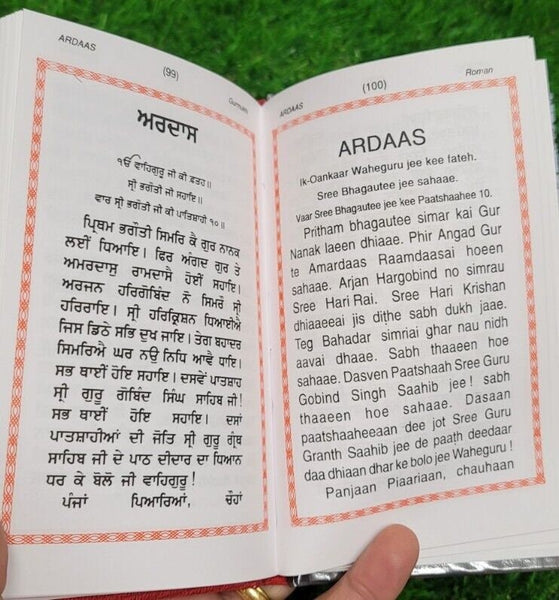 ARDAAS
(99)
Gurmukhi
ਅਰਦਾਸ
ੴ ਵਾਹਿਗੁਰੂ ਜੀ ਕੀ ਫ਼ਤਹ॥
ਸ੍ਰੀ ਭਗੌਤੀ ਜੀ ਸਹਾਇ॥
ਵਾਰ ਸ੍ਰੀ ਭਗੌਤੀ ਜੀ ਕੀ ਪਾਤਸ਼ਾਹੀ ੧੦॥
ਪ੍ਰਿਥਮ ਭਗੌਤੀ ਸਿਮਰਿ ਕੈ ਗੁਰ ਨਾਨਕ
ਲਈਂ ਧਿਆਇ। ਫਿਰ ਅੰਗਦ ਗੁਰ ਤੇ
ਅਮਰਦਾਸੁ ਰਾਮਦਾਸੈ ਹੋਈਂ ਸਹਾਇ।
ਅਰਜਨ ਹਰਿਗੋਬਿੰਦ ਨੋ ਸਿਮਰੌ ਸ੍ਰੀ
ਹਰਿਰਾਇ। ਸ੍ਰੀ ਹਰਿਕ੍ਰਿਸ਼ਨ ਧਿਆਈਐ
ਜਿਸ ਡਿਠੇ ਸਭਿ ਦੁਖ ਜਾਇ। ਤੇਗ ਬਹਾਦਰ
ਸਿਮਰਿਐ ਘਰ ਨਉ ਨਿਧਿ ਆਵੈ ਧਾਇ।
ਸਭ ਥਾਈਂ ਹੋਇ ਸਹਾਇ। ਦਸਵੇਂ ਪਾਤਸ਼ਾਹ
ਸ੍ਰੀ ਗੁਰੂ ਗੋਬਿੰਦ ਸਿੰਘ ਸਾਹਿਬ ਜੀ!
ਸਭ ਥਾਈਂ ਹੋਇ ਸਹਾਇ। ਦਸਾਂ
ਪਾਤਸ਼ਾਹੀਆਂ ਦੀ ਜੋਤਿ ਸ੍ਰੀ ਗੁਰੂ ਗ੍ਰੰਥ
ਸਾਹਿਬ ਜੀ ਦੇ ਪਾਠ ਦੀਦਾਰ ਦਾ ਧਿਆਨ
ਧਰ ਕੇ ਬੋਲੋ ਜੀ ਵਾਹਿਗੁਰੂ!
ਪੰਜਾਂ ਪਿਆਰਿਆਂ, ਚੌਹਾਂ
ARDAAS
(100)
Roman
ARDAAS
Ik-Oankaar Waheguru jee kee fateh.
Sree Bhagautee jee sahaae.
Vaar Sree Bhagautee jee kee Paatshaahee 10.
Pritham bhagautee simar kai Gur
Nanak laeen dhiaae. Phir Angad Gur
te Amardaas Raamdaasai hoeen
sahaae. Arjan Hargobind no simrau
Sree Hari Rai. Sree Hari Krishan
dhiaaeeai jis dithe sabh dukh jaae.
Teg Bahadar simriai ghar nau nidh
aavai dhaae. Sabh thaaeen hoe
sahaae. Dasven Paatshaah Sree Guru
Gobind Singh Saahib jee! sabh
thaaeen hoe sahaae. Dasaan
paatshaaheeaan dee jot Sree Guru
Granth Saahib jee de paath deedaar
daa dhiaan dhar ke bolo jee Waheguru!
Panjaan Piaariaan, chauhaan